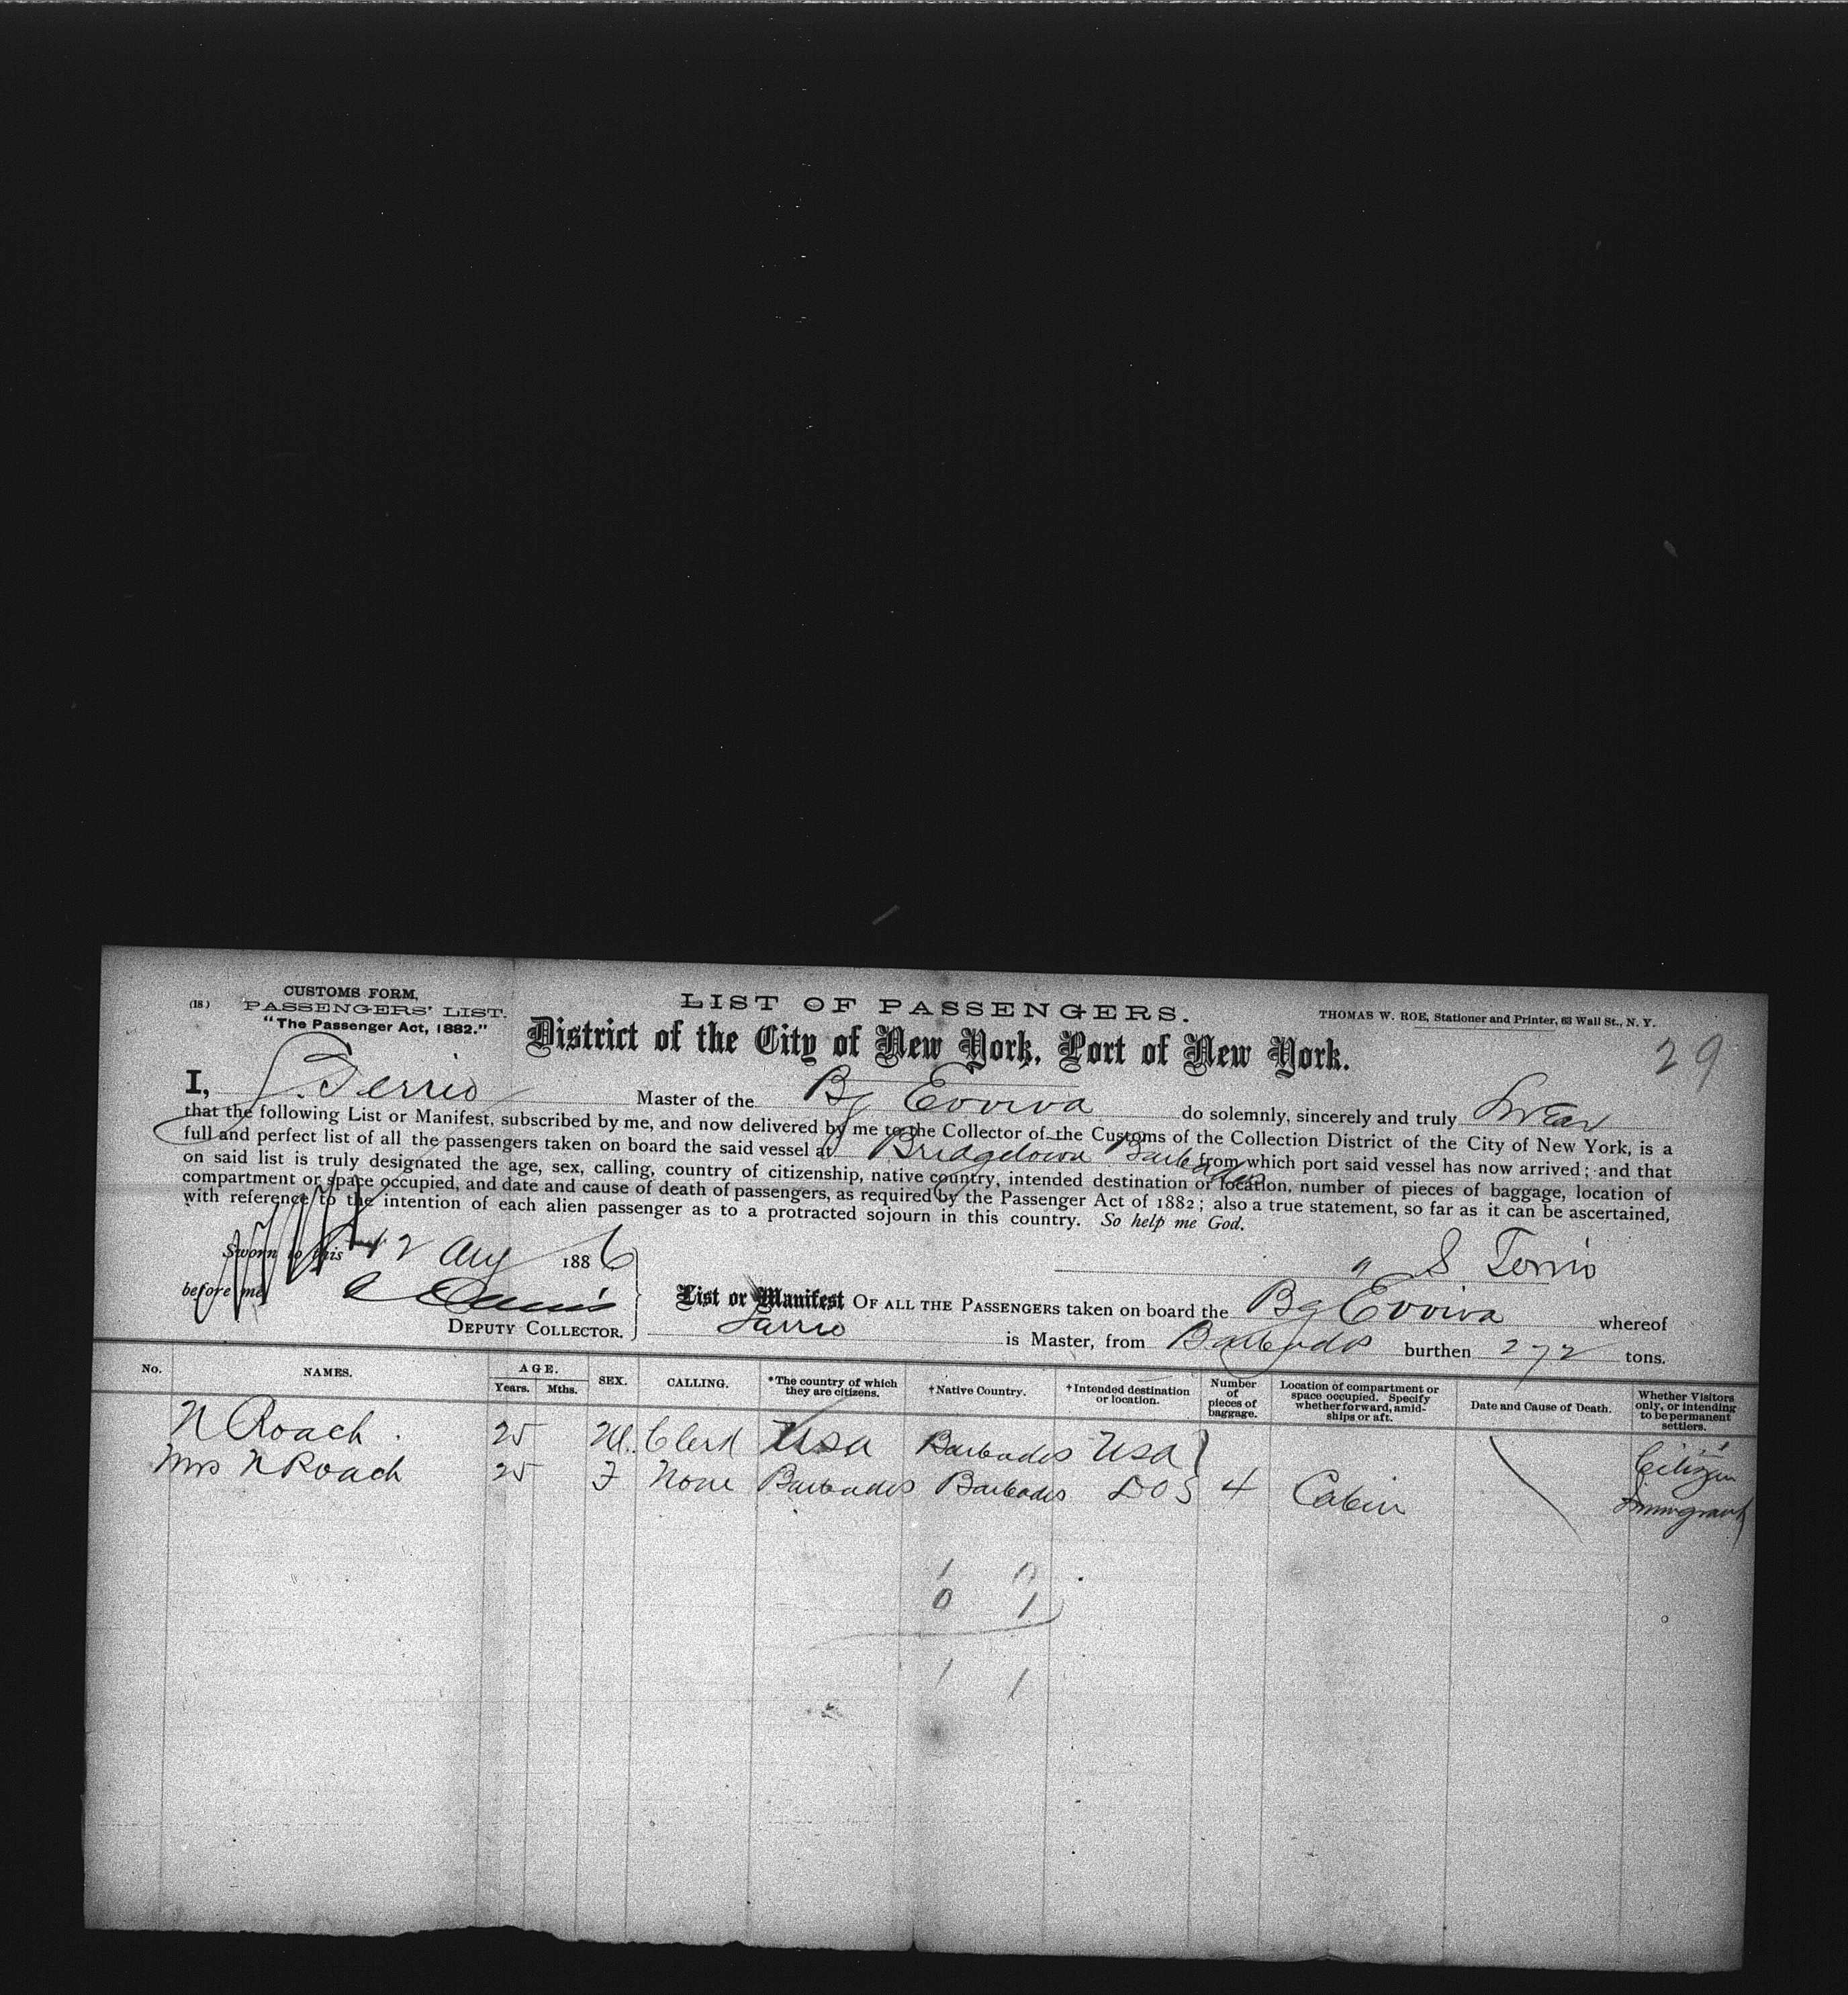 (18.)
CUSTOMS FORM,
PASSENGERS' LIST.
"The Passenger Act, 1882."
LIST OF PASSENGERS.
THOMAS W. ROE, Stationer and Printer, 63 Wall St., N. Y.
District of the City of New York, Port of New York.
29
I, Terrio Master of the Bg Evviva do solemnly, sincerely and truly Swear
that the following List or Manifest, subscribed by me, and now delivered by me to the Collector of the Customs of the Collection District of the City of New York, is a
full and perfect list of all the passengers taken on board the said vessel at Bridgetown Barbados from which port said vessel has now arrived; and that
on said list is truly designated the age, sex, calling, country of citizenship, native country, intended destination or location, number of pieces of baggage, location of
compartment or space occupied, and date and cause of death of passengers, as required by the Passenger Act of 1882; also a true statement, so far as it can be ascertained,
with reference to the intention of each alien passenger as to a protracted sojourn in this country. So help me God.
Sworn to this 12 Aug 1886
S. Terrio
before me
DEPUTY COLLECTOR.
List or Manifest OF ALL THE PASSENGERS taken on board the Bg Evviva whereof
is Master, from Barbados burthen 272 tons.
No. NAMES. AGE. Years. Mths. SEX. CALLING. *The country of which they are citizens. †Native Country. †Intended destination or location. Number of pieces of baggage. Location of compartment or space occupied. Specify whether forward, amidships or aft. Date and Cause of Death. Whether Visitors only, or intending to be permanent settlers.
N Roach. 25 M. Clerk Usa Barbados Usa Citizen
Mrs N Roach 25 F None Barbados Barbados DO 4 Cabin Immigrant
1 0
0 1
1 1